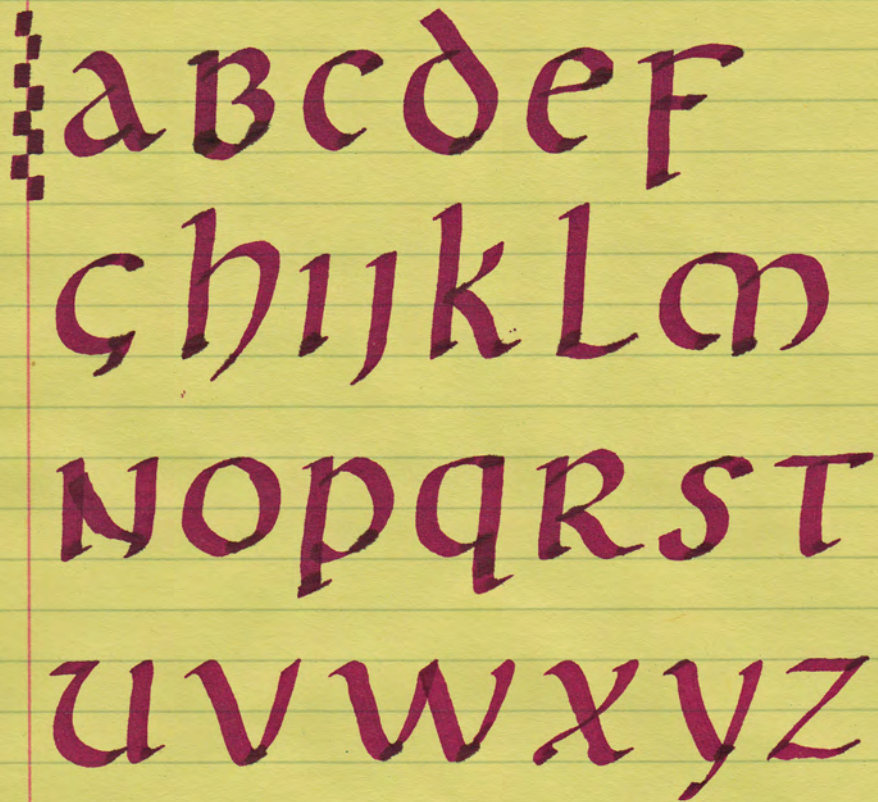 aBcdeF
ghijklm
NopqRST
uvwxyz